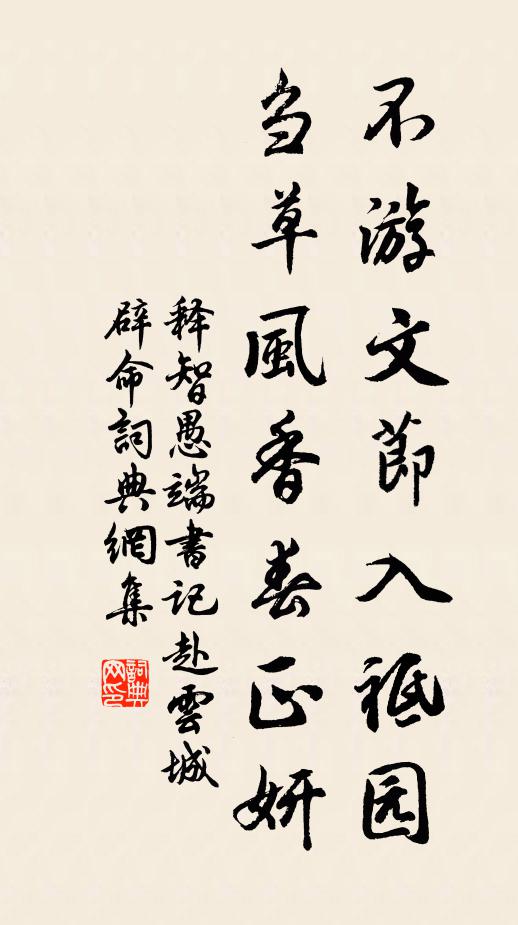 不游文節入祗园
刍草風香春正妍
释智愚端書记赴雲城
辟命詞典網集
詞典网印